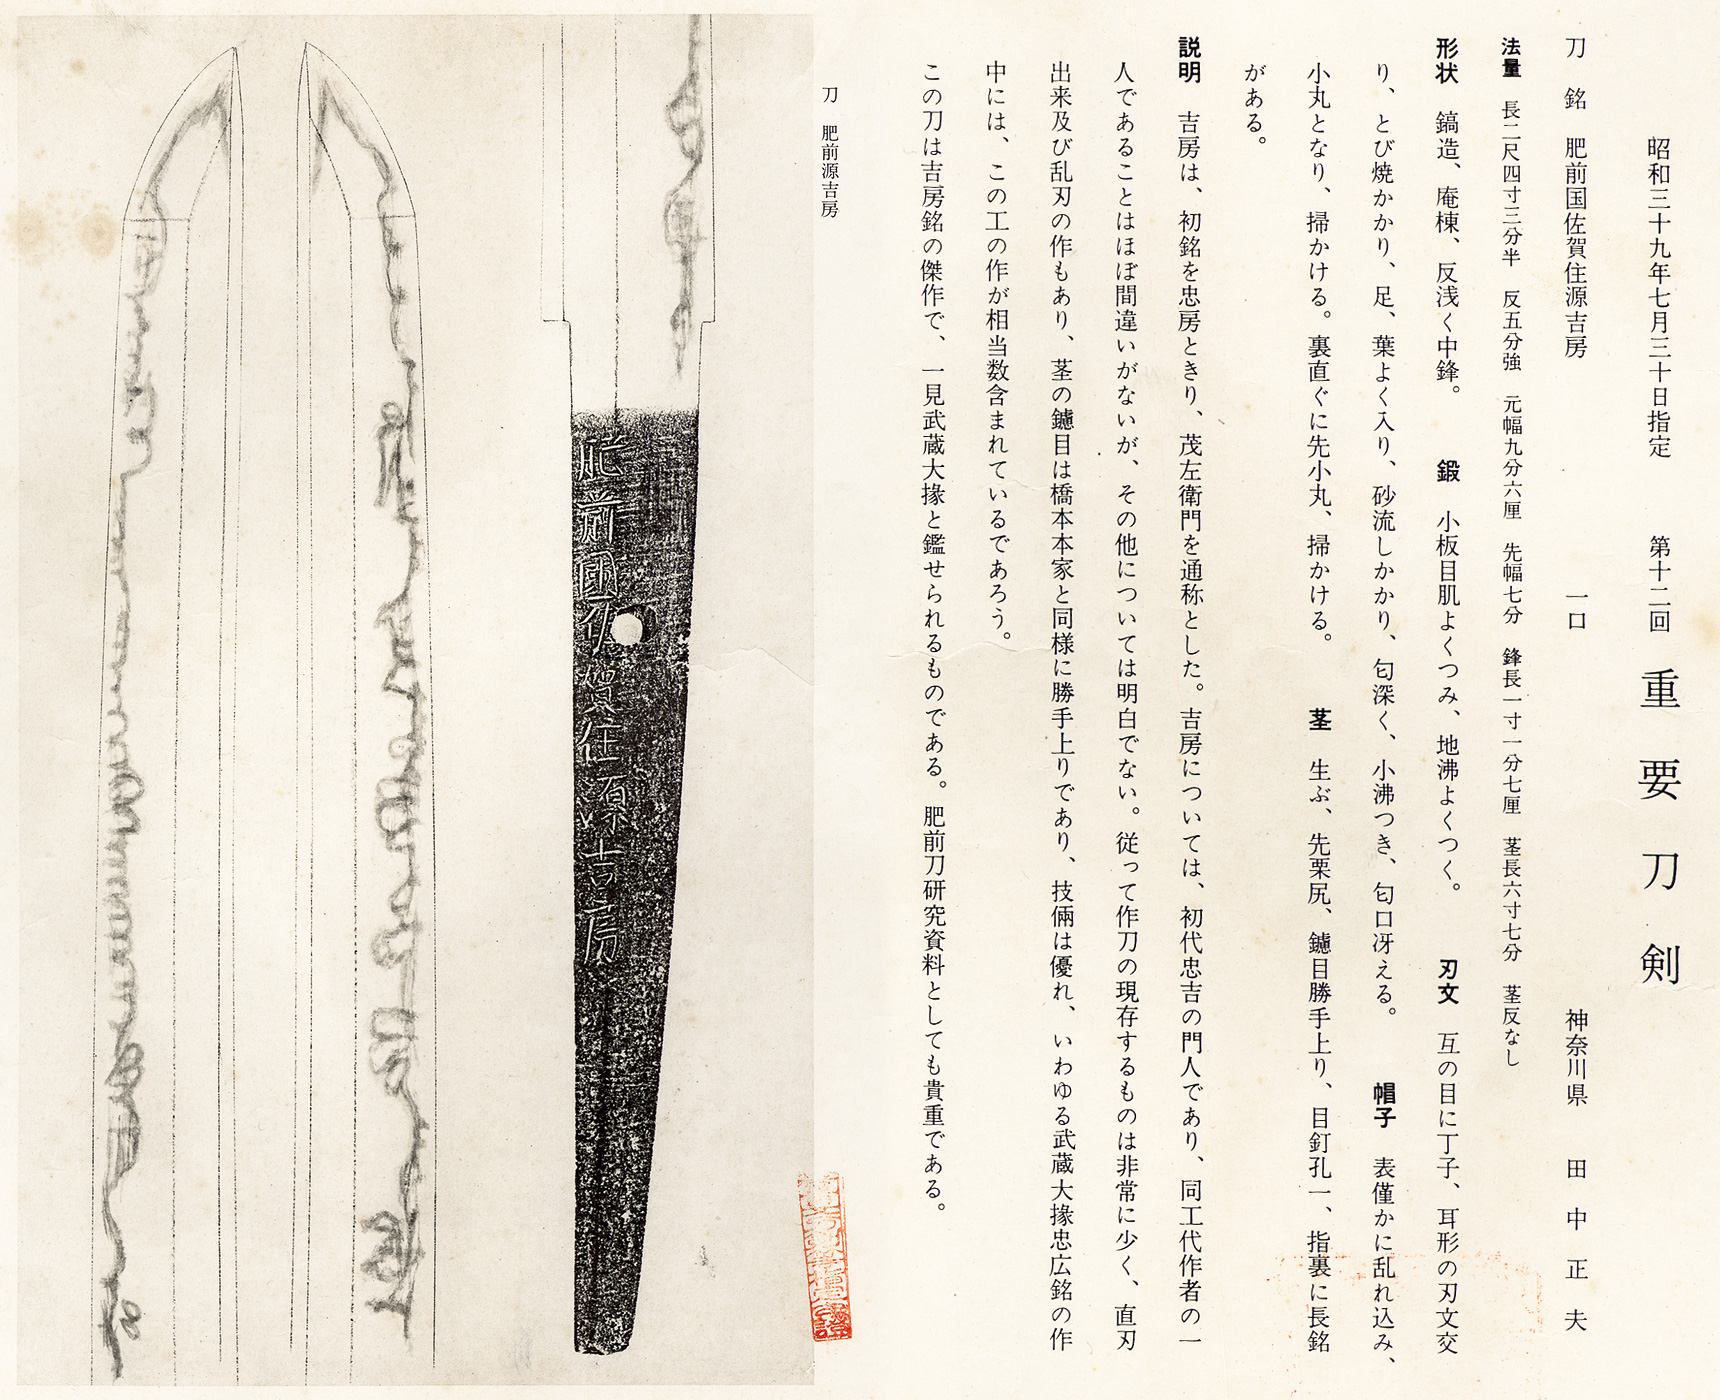 昭和三十九年七月三十日指定　第十二回　重要刀剣
刀　銘　肥前国佐賀住源吉房　一口　神奈川県　田中正夫
法量　長二尺四寸三分半　反五分強　元幅九分六厘　先幅七分　鋒長一寸一分七厘　茎長六寸七分　茎反なし
形状　鎬造、庵棟、反浅く中鋒。　鍛　小板目肌よくつみ、地沸よくつく。　刃文　互の目に丁子、耳形の刃文交
り、とび焼かかり、足、葉よく入り、砂流しかかり、匂深く、小沸つき、匂口冴える。　帽子　表僅かに乱れ込み、
小丸となり、掃かける。裏直ぐに先小丸、掃かける。　茎　生ぶ、先栗尻、鑢目勝手上り、目釘孔一、指裏に長銘
がある。
説明　吉房は、初銘を忠房ときり、茂左衛門を通称とした。吉房については、初代忠吉の門人であり、同工代作者の一
人であることはほぼ間違いがないが、その他については明白でない。従って作刀の現存するものは非常に少く、直刃
出来及び乱刃の作もあり、茎の鑢目は橋本本家と同様に勝手上りであり、技倆は優れ、いわゆる武蔵大掾忠広銘の作
中には、この工の作が相当数含まれているであろう。
この刀は吉房銘の傑作で、一見武蔵大掾と鑑せられるものである。肥前刀研究資料としても貴重である。
刀　肥前源吉房
肥前國佐賀住源吉房